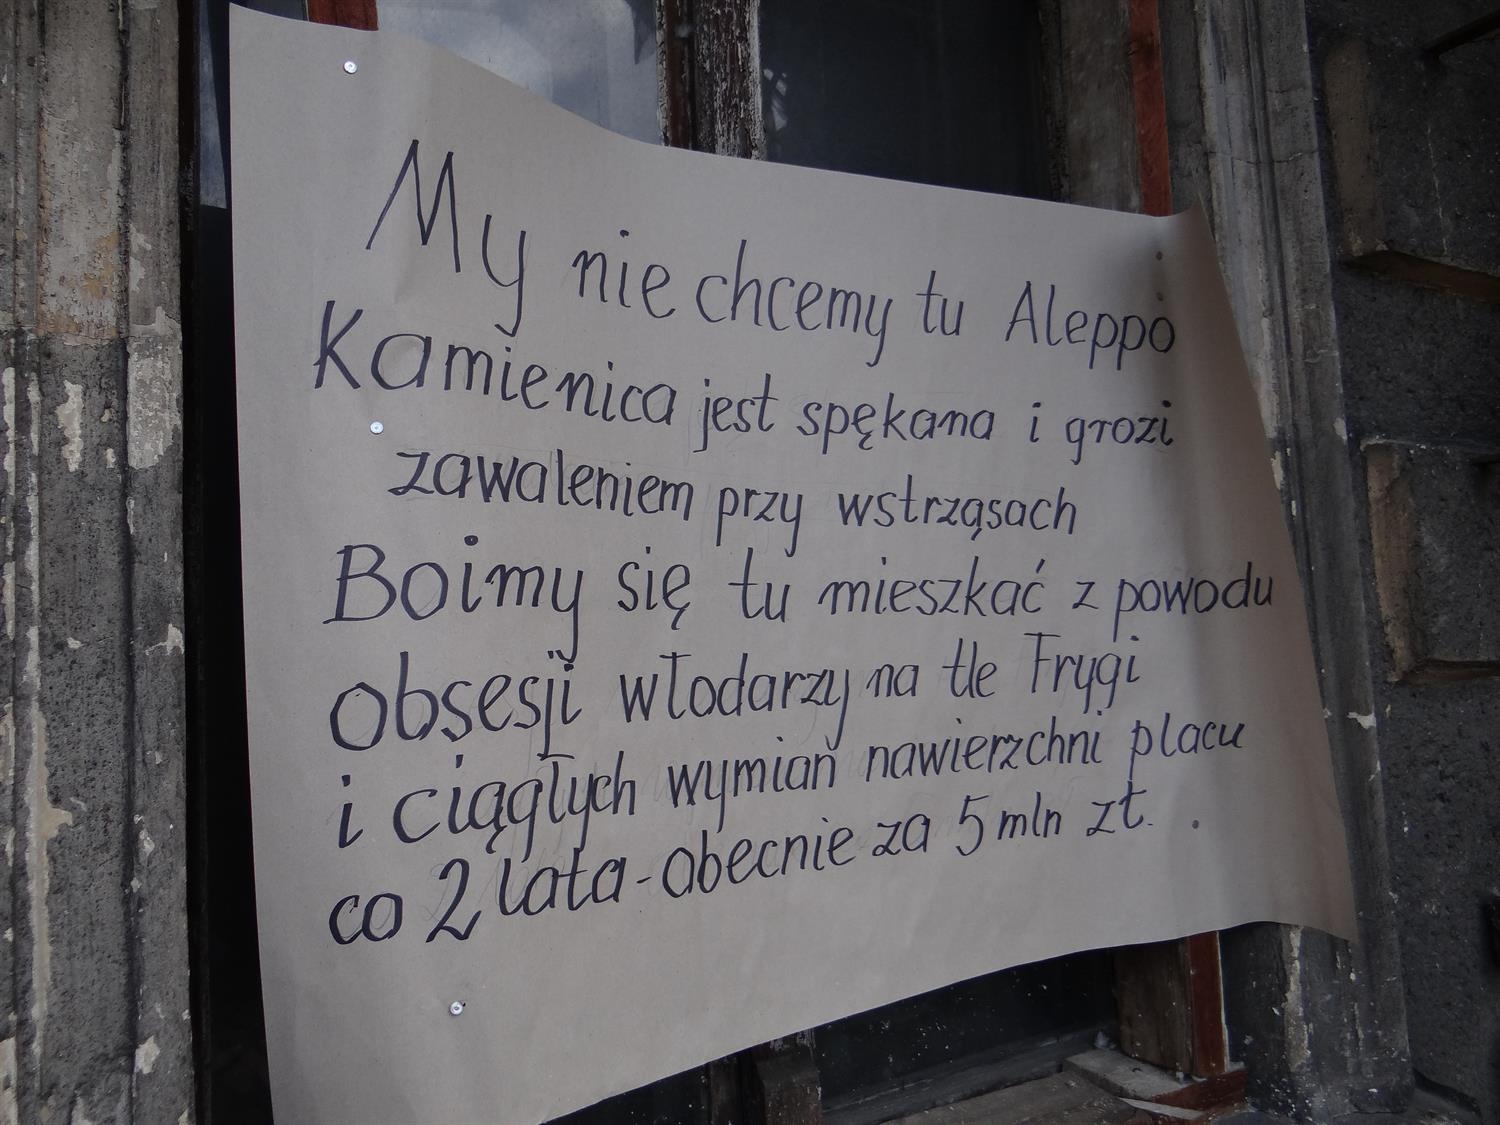 My nie chcemy tu Aleppo
Kamienica jest spękana i grozi
zawaleniem przy wstrząsach
Boimy się tu mieszkać z powodu
obsesji włodarzy na tle Frygi
i ciągłych wymian nawierzchni placu
co 2 lata - obecnie za 5 mln zł.